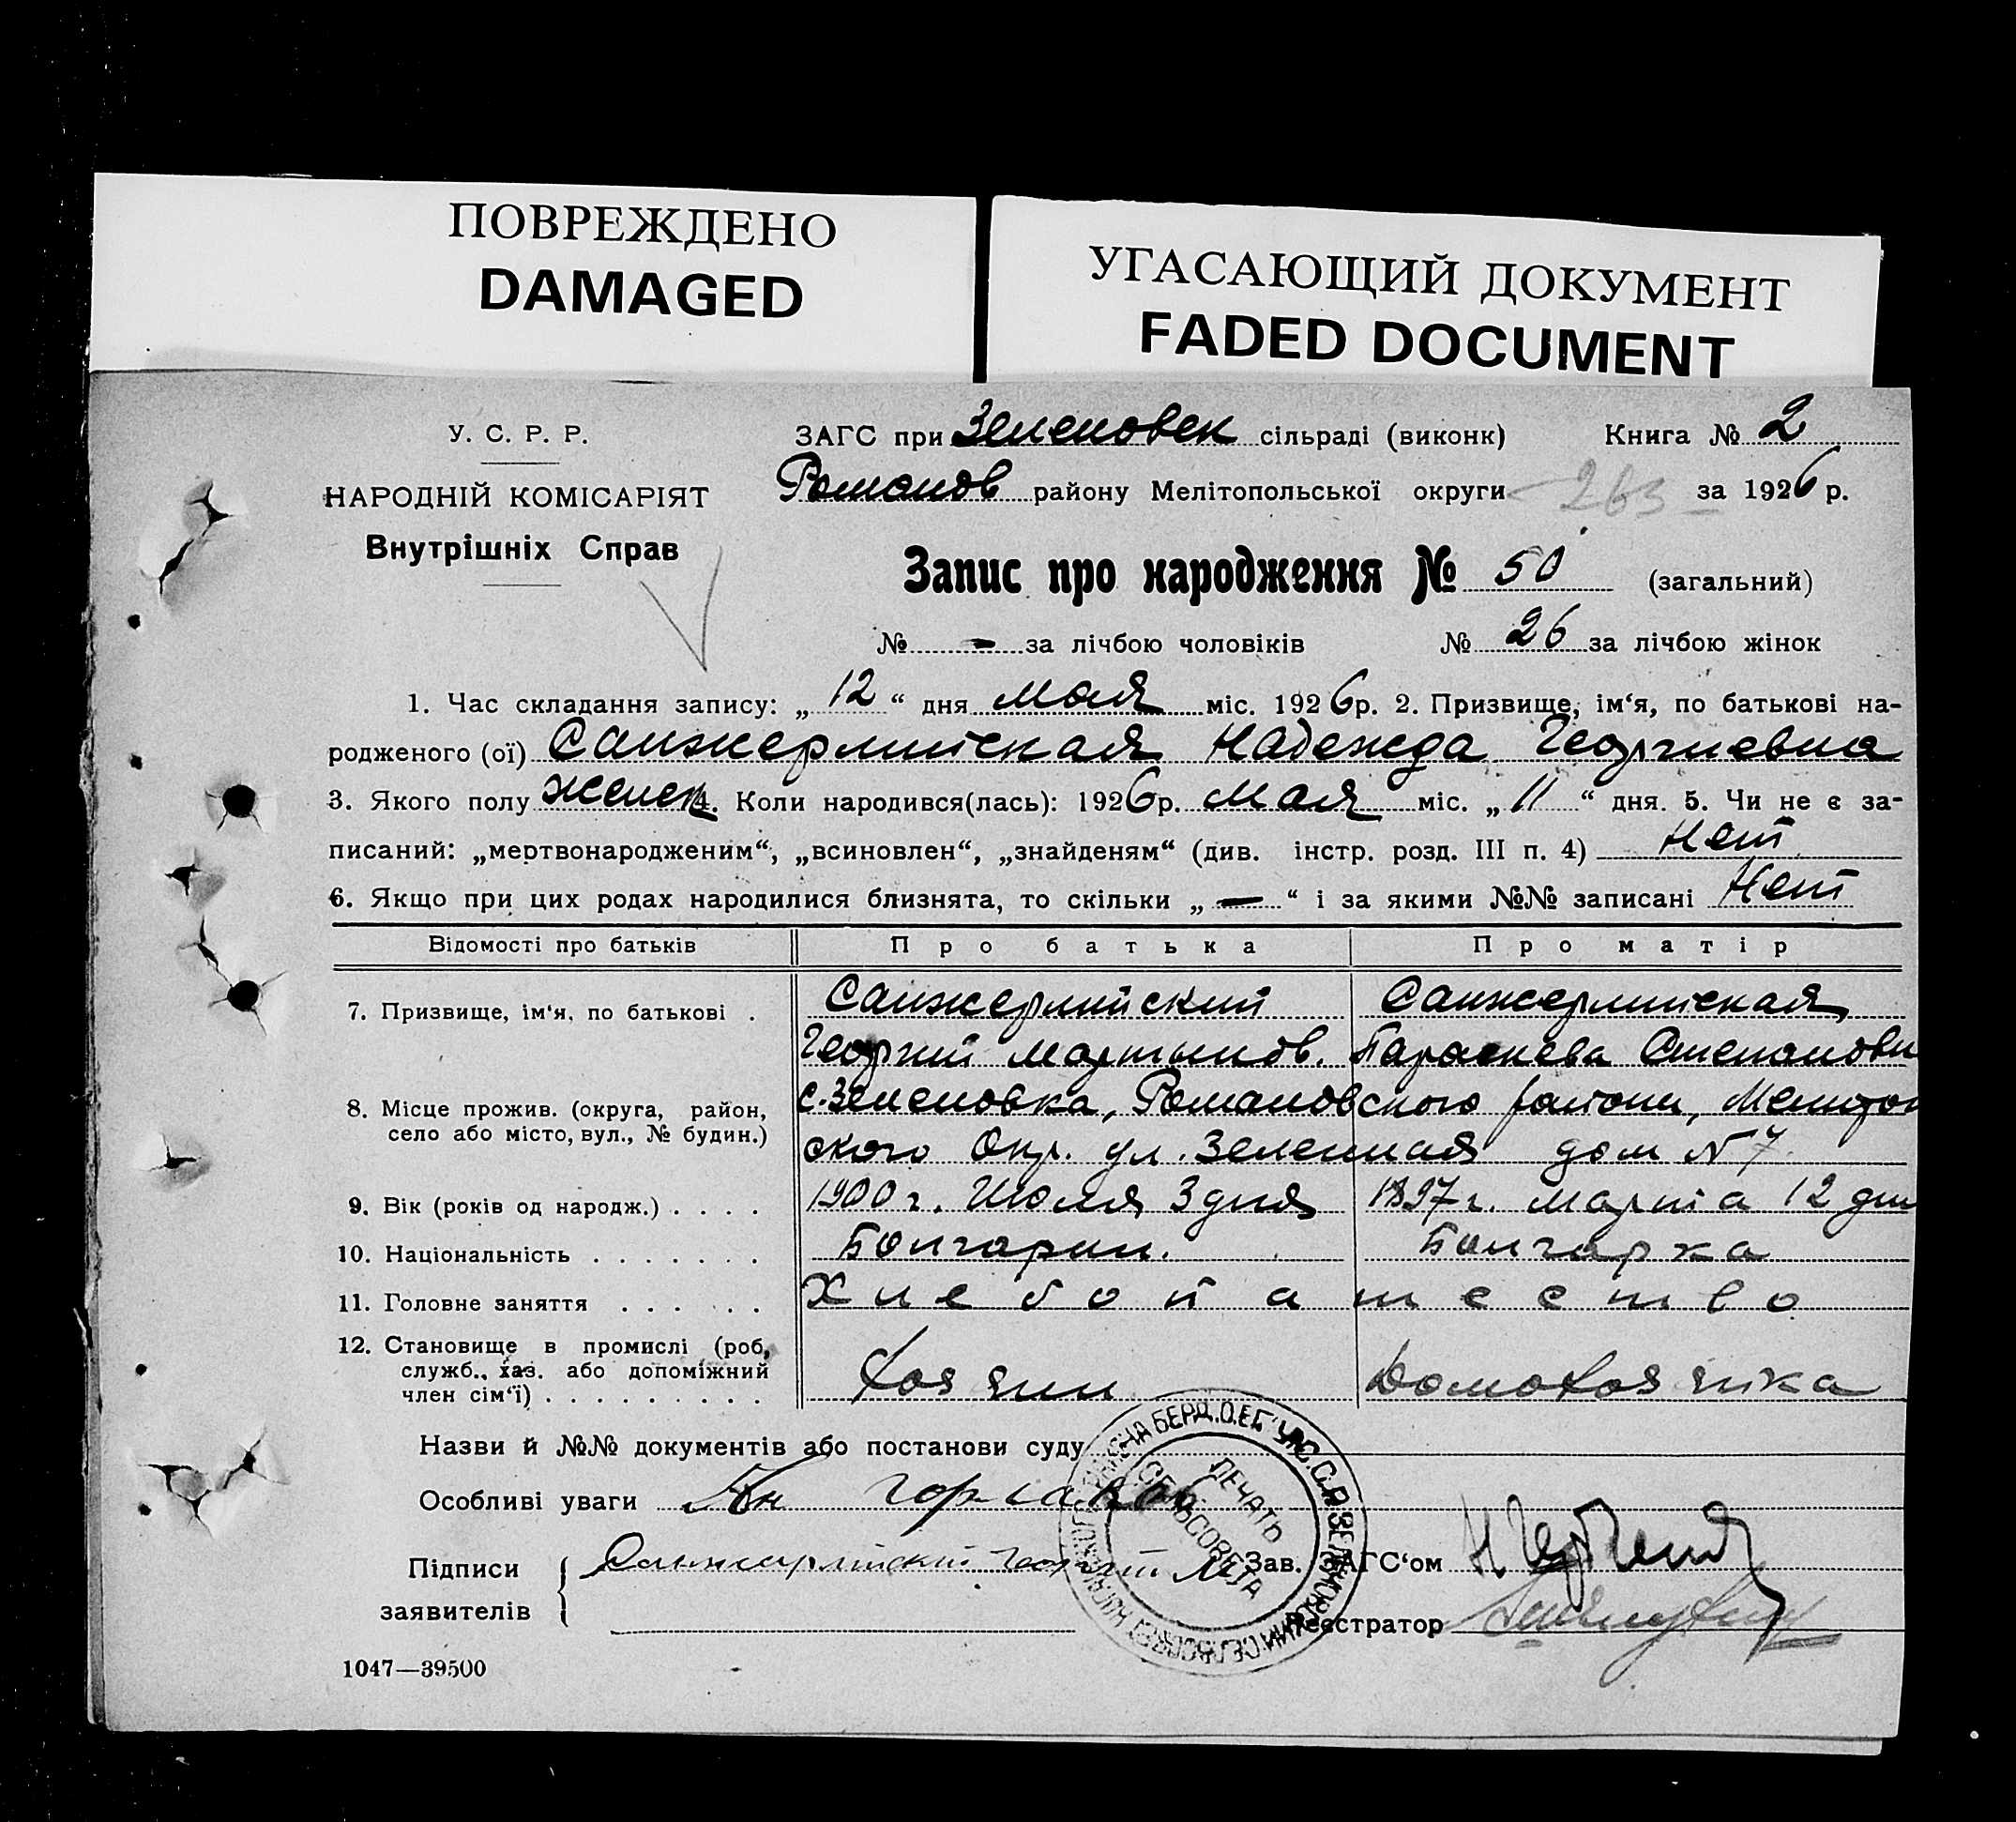 ПОВРЕЖДЕНО
DAMAGED
УГАСАЮЩИЙ ДОКУМЕНТ
FADED DOCUMENT
У. С. Р. Р.
НАРОДНІЙ КОМІСАРІЯТ
Внутрішніх Справ
ЗАГС при Зеленовек сільраді (виконк) Книга № 2
Романов району Мелітопольської округи 263 за 1926 р.
Запис про народження № 50 (загальний)
№ - за лічбою чоловіків № 26 за лічбою жінок
1. Час складання запису: „ 12 “ дня Мая міс. 1926 р. 2. Призвище, ім‘я, по батькові на-
родженого (ої) Санжерлийская Надежда Георгиевна
3. Якого полу женск. Коли народився(лась): 1926 р. Мая міс. „ 11 “ дня. 5. Чи не є за-
писаний: „мертвонародженим“, „всиновлен“, „знайденям“ (див. інстр. розд. III п. 4) Нет
6. Якщо при цих родах народилися близнята, то скільки „ — “ і за якими №№ записані Нет
Відомості про батьків Про батька Про матір
7. Призвище, ім‘я, по батькові . Санжерлийский Санжерлийская
Георгий Мартынов. Параскева Степановн
8. Місце прожив. (округа, район, с. Зеленовка, Романовского района, Мелитоп
село або місто, вул., № будин.) ского Окр. ул. Зеленная дом № 7
9. Вік (років од народж.) . . . . 1900 г. Июля 3 дня 1897 г. Марта 12 дн
10. Національність . . . . . . . Болгарин. Болгарка
11. Головне заняття . . . . . . Хлебопашество
12. Становище в промислі (роб,
служб., хаз. або допоміжний
член сім‘ї) . . . . . . . . . Хозяин Домохозяйка
Назви й №№ документів або постанови суду
Особливі уваги
Підписи заявителів Санжерлийский Георгий М
Зав. ЗАГС‘ом
Реєстратор
ПЕЧАТЬ СЕЛЬСОВЕТА
1047—39500